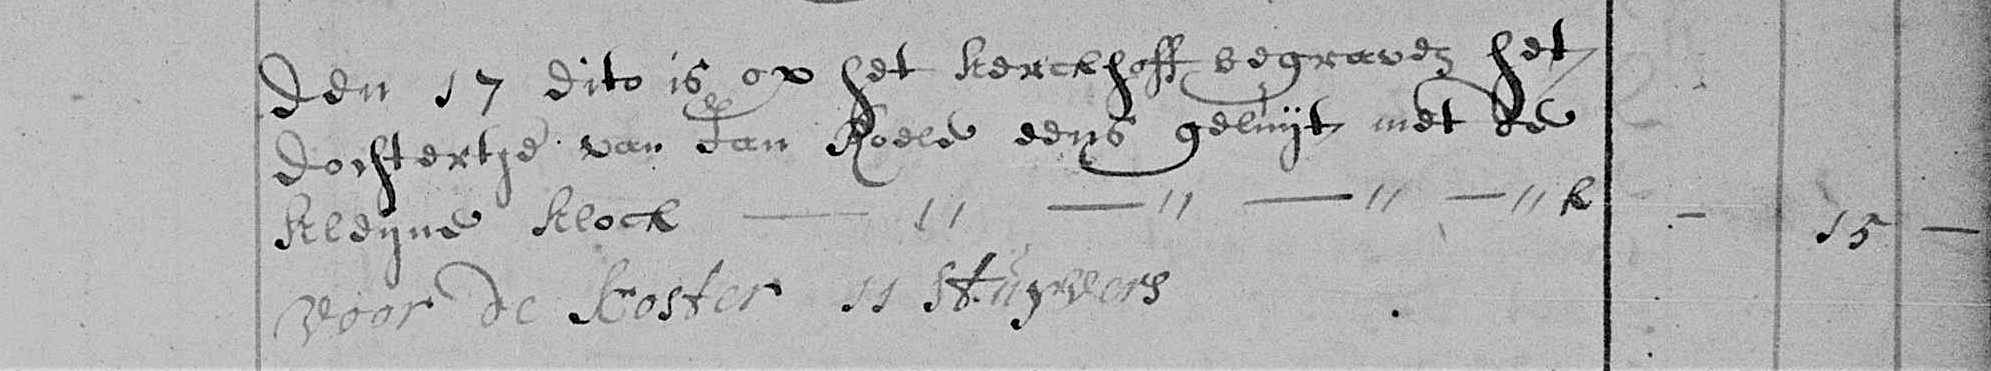 Den 17 dito is op het kerckhoff begraven het
dochtertje van Jan Roels eens geluijt met de
kleijne klock — 11 — 11 — 11 — 11 k - 15 —
voor de koster 11 stuyvers